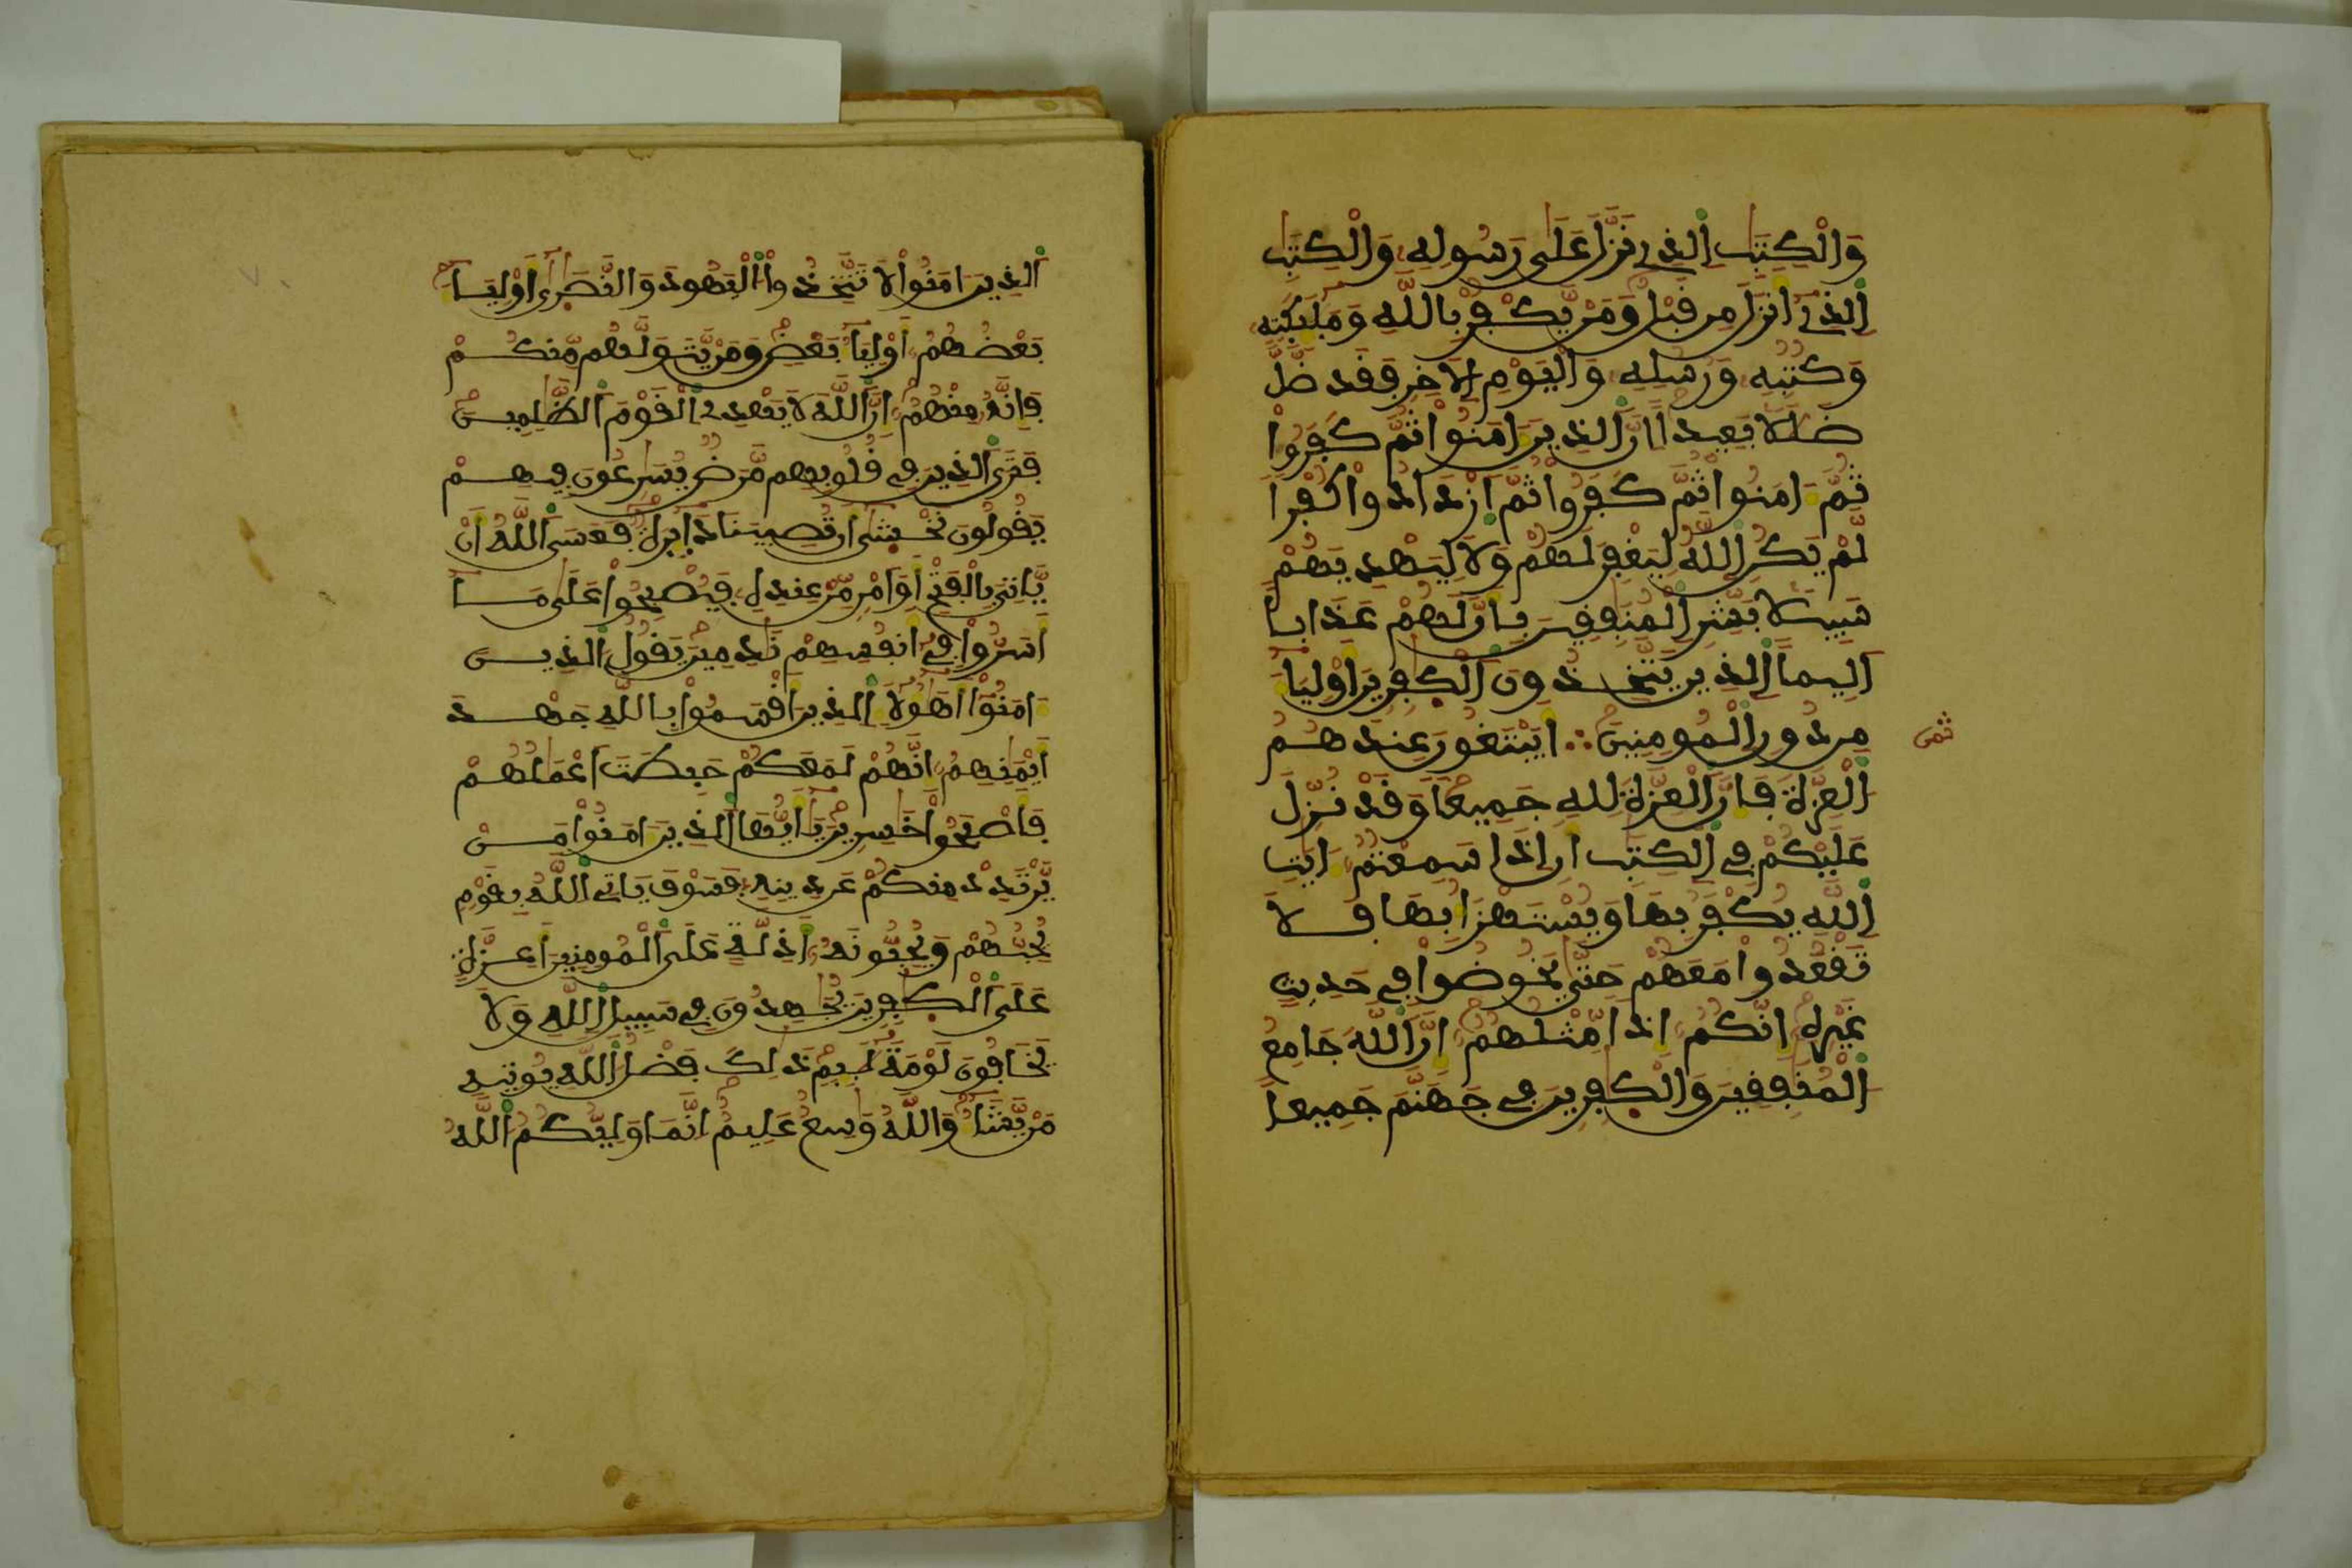 وَالْكِتَٰبِ اِلذِے نَزَّلَ عَلَىٰ رَسُولِهِۦ وَالْكِتَٰبِ
اِلذِےٓ أَنزَلَ مِن قَبْلُ وَمَنْ يَّكْفُرْ بِاللَّهِ وَمَلَٰٓئِكَتِهِۦ
وَكُتُبِهِۦ وَرُسُلِهِۦ وَالْيَوْمِ اِلَاخِرِ فَقَد ضَّلَّ
ضَلَٰلَا بَعِيداً اِنَّ اَلذِينَ ءَامَنُواْ ثُمَّ كَفَرُواْ
ثُمَّ ءَامَنُواْ ثُمَّ كَفَرُواْ ثُمَّ اَزْدَادُواْ كُفْراً
لَّمْ يَكُنِ اِللَّهُ لِيَغْفِرَ لَهُمْ وَلَا لِيَهْدِيَهُمْ
سَبِيلَا بَشِّرِ اِلْمُنَٰفِقِينَ بِأَنَّ لَهُمْ عَذَاباً
اَلِيماً اِلذِينَ يَتَّخِذُونَ اَلْكَٰفِرِينَ أَوْلِيَآءَ
مِن دُونِ اِلْمُومِنِينَ ∴ أَيَبْتَغُونَ عِندَهُمُ
ثمن
اُلْعِزَّةَ فَإِنَّ اَلْعِزَّةَ لِلهِ جَمِيعاً وَقَدْ نُزِّلَ
عَلَيْكُمْ فِے اِلْكِتَٰبِ أَنِ اِذَا سَمِعْتُمُۥٓ ءَايَٰتِ
اِللَّهِ يُكْفَرُ بِهَا وَيُسْتَهْزَأُ بِهَا فَلَا
تَقْعُدُواْ مَعَهُمْ حَتَّىٰ يَخُوضُواْ فِے حَدِيثٍ
غَيْرِهِۦٓ إِنَّكُمُۥٓ إِذاً مِّثْلُهُمُۥٓ إِنَّ اَللَّهَ جَامِعُ
اُلْمُنَٰفِقِينَ وَالْكَٰفِرِينَ فِے جَهَنَّمَ جَمِيعاً
اَلذِينَ ءَامَنُواْ لَا تَتَّخِذُواْ اُلْيَهُودَ وَالنَّصَٰرَىٰٓ أَوْلِيَآءَ
بَعْضُهُمُۥٓ أَوْلِيَآءُ بَعْضٍ وَمَنْ يَّتَوَلَّهُم مِّنكُمْ
فَإِنَّهُۥ مِنْهُمُۥٓ إِنَّ اَللَّهَ لَا يَهْدِے اِلْقَوْمَ اَلظَّٰلِمِينَ
فَتَرَى اَلذِينَ فِے قُلُوبِهِم مَّرَضٌ يُسَٰرِعُونَ فِيهِمْ
يَقُولُونَ نَخْشَىٰٓ أَن تُصِيبَنَا دَآئِرَةٌ فَعَسَى اَللَّهُ أَنْ
يَّاتِىَ بِالْفَتْحِ أَوَ اَمْرٍ مِّنْ عِندِهِۦ فَيُصْبِحُواْ عَلَىٰ مَآ
أَسَرُّواْ فِےٓ أَنفُسِهِمْ نَٰدِمِينَ يَقُولُ اُلذِينَ
ءَامَنُوٓاْ أَهَٰٓؤُلَآءِ اِلذِينَ أَقْسَمُواْ بِاللَّهِ جَهْدَ
أَيْمَٰنِهِمُۥٓ إِنَّهُمْ لَمَعَكُمْ حَبِطَتَ اَعْمَٰلُهُمْ
فَأَصْبَحُواْ خَٰسِرِينَ يَٰٓأَيُّهَا اَلذِينَ ءَامَنُواْ مَنْ
يَّرْتَدِدْ مِنكُمْ عَن دِينِهِۦ فَسَوْفَ يَاتِے اِللَّهُ بِقَوْمٍ
يُحِبُّهُمْ وَيُحِبُّونَهُۥٓ أَذِلَّةٍ عَلَى اَلْمُومِنِينَ أَعِزَّةٍ
عَلَى اَلْكَٰفِرِينَ يُجَٰهِدُونَ فِے سَبِيلِ اِللَّهِ وَلَا
يَخَافُونَ لَوْمَةَ لَآئِمٍ ذَٰلِكَ فَضْلُ اُللَّهِ يُوتِيهِ
مَنْ يَّشَآءُ وَاللَّهُ وَٰسِعٌ عَلِيمٌ اِنَّمَا وَلِيُّكُمُ اُللَّهُ